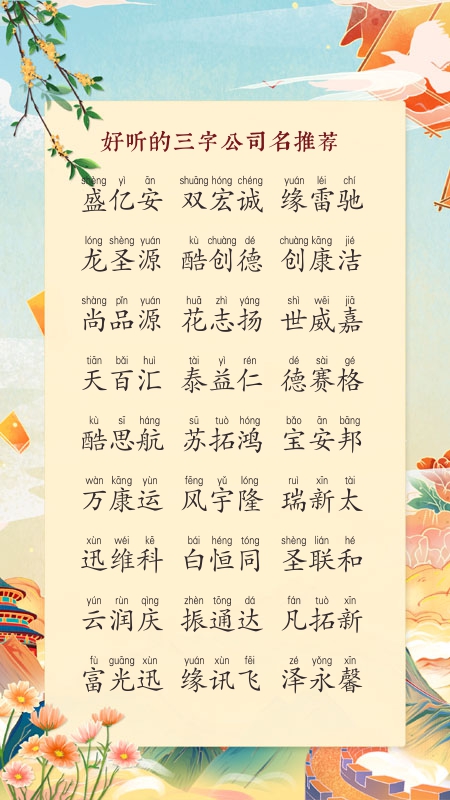 好听的三字公司名推荐
shèng yì ān shuāng hóng chéng yuán léi chí
盛亿安 双宏诚 缘雷驰
lóng shèng yuán kù chuàng dé chuàng kāng jié
龙圣源 酷创德 创康洁
shàng pǐn yuán huā zhì yáng shì wēi jiā
尚品源 花志扬 世威嘉
tiān bǎi huì tài yì rén dé sài gé
天百汇 泰益仁 德赛格
kù sī háng sū tuò hóng bǎo ān bāng
酷思航 苏拓鸿 宝安邦
wàn kāng yùn fēng yǔ lóng ruì xīn tài
万康运 风宇隆 瑞新太
xùn wéi kē bái héng tóng shèng lián hé
迅维科 白恒同 圣联和
yún rùn qìng zhèn tōng dá fán tuò xīn
云润庆 振通达 凡拓新
fù guāng xùn yuán xùn fēi zé yǒng xīn
富光迅 缘讯飞 泽永馨